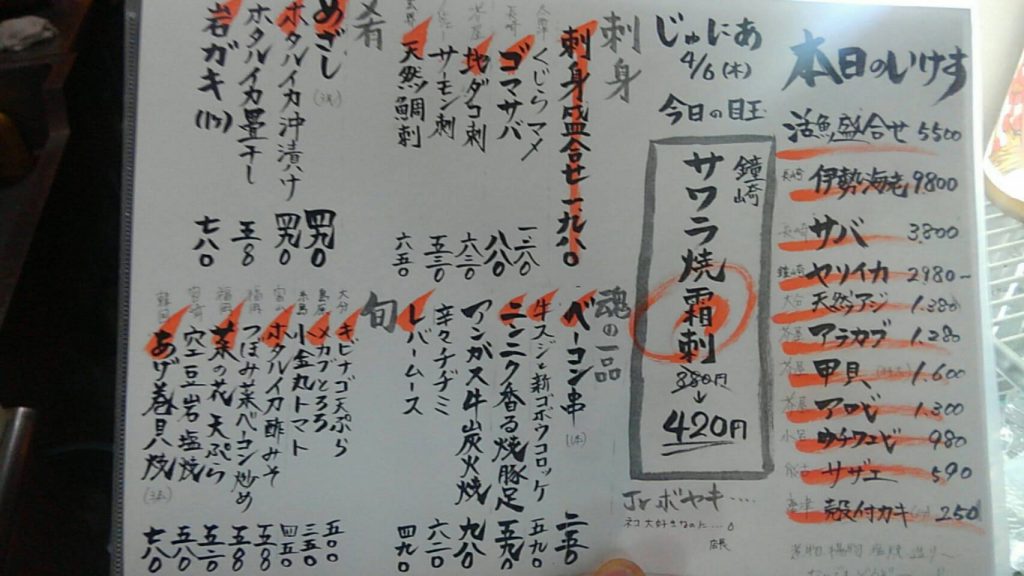 本日のいけす
活魚盛合せ 5500
長崎 伊勢海老 9800
長崎 サバ 3.800
鐘崎 ヤリイカ 2980~
大分 天然アジ 1.380
アラカブ 1.280
甲貝 1.600
アワビ 1.300
ウチワエビ 980
サザエ 590
唐津 殻付カキ 250
じゅにあ
4/6(木)
今日の目玉
鐘崎
サワラ焼霜刺
380円
↓
420円
Jrボヤキ....
ネコ大好きなのに...。
店長
刺身
刺身盛合せ 一九八〇
くじらマメ 一.二八〇
長崎 ゴマサバ 八八〇
地ダコ刺 六三〇
サーモン刺 五三〇
天然鯛刺 六五〇
肴
めざし 四九〇
ホタルイカ沖漬け 四九〇
ホタルイカ畳干し 五八〇
岩ガキ 七八〇
魂の一品
ベーコン串 二五〇
牛スジと新ゴボウコロッケ 五九〇
ニンニク香る焼豚足 五九〇
アンガス牛炭火焼 九八〇
辛々チヂミ 六二〇
レバームース 四九〇
旬
大分 キビナゴ天ぷら 五八〇
島原 メカブとろろ 三五〇
糸島 小金丸トマト 四五〇
ホタルイカ酢みそ 五八〇
福岡 つぼみ菜ベーコン炒め 五八〇
福岡 菜の花天ぷら 五二〇
宮崎 空豆岩塩焼 五八〇
韓国 あげ巻貝焼 七八〇